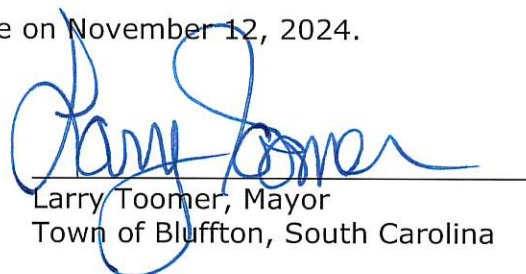 e on November 12, 2024.
Larry Toomer
Larry Toomer, Mayor
Town of Bluffton, South Carolina